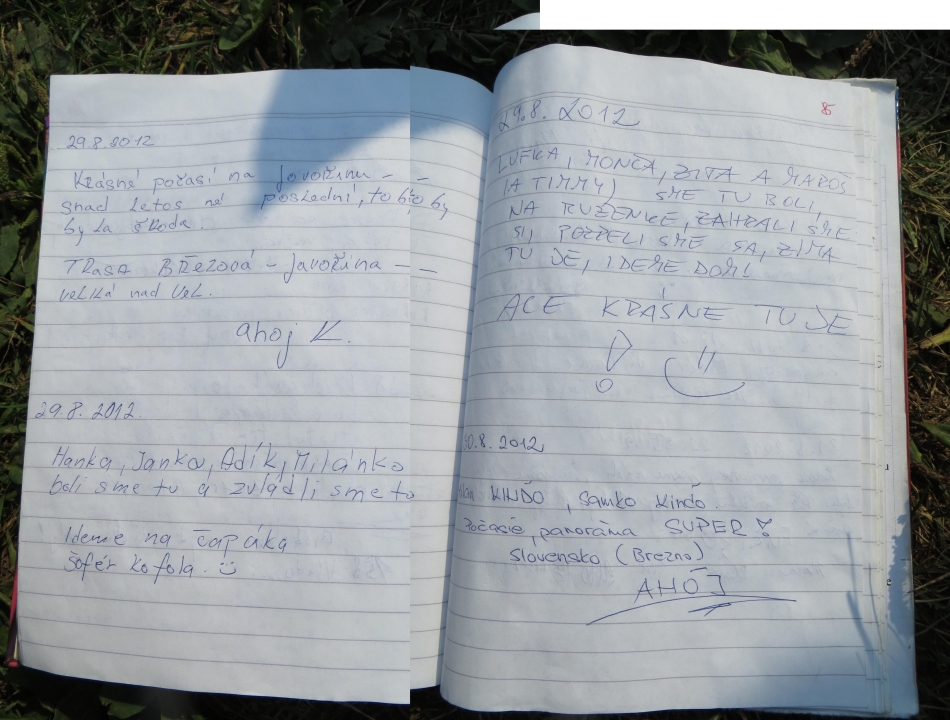 29.8.2012
Krásné počasí na Javořinu -
snad letos né poslední, to by
byla škoda.
TRASA BŘEZOVÁ - Javořina -
veLKá nad Vel.
ahoj K.
29.8.2012.
Hanka, Janka, Adík, Milanko
boli sme tu a zvládli sme to
Ideme na čapáka
šofér kofola.
85
29.8. 2012
LUFKA, MONČA, ZITA A MAROŠ
(A TIMMY) SME TU BOLI,
NA RUŽENKE, ZAHRALI SME
SI, POZRELI SME SA, ZIMA
TU JE, IDEME DOMI
ALE KRÁSNE TU JE
!
30.8.2012
KINĎO, Samko Kinďo.
Počasie, panoráma SUPER!
Slovensko (Brezno)
AHOJ